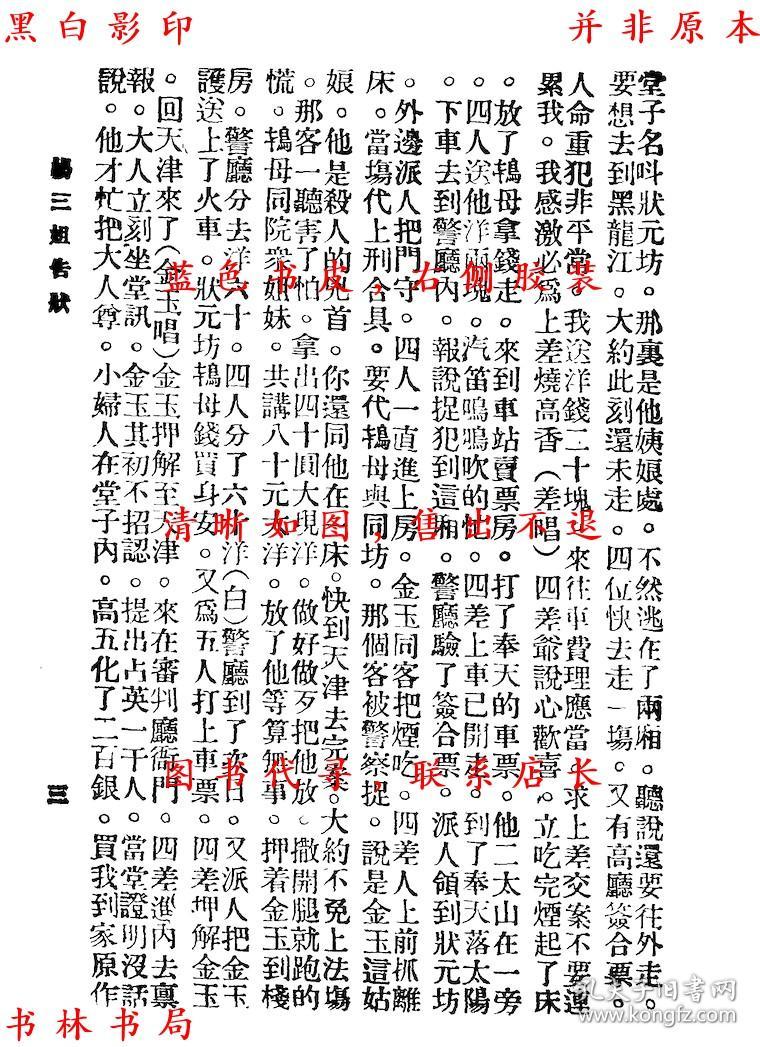 黑白影印
并非原本
堂子名呌狀元坊。那裏是他姨娘處。不然逃在了兩廂。聽說還要往外走。
要想去到黑龍江。大約此刻還未走。四位快去走一塲。又有高廳簽合票。
人命重犯非平常。我送洋錢二十塊。來往車費理應當。求上差交案不要連
累我。我感激必爲上差燒高香（差唱）四差爺說心歡喜。立吃完煙起了床
。放了鴇母拿錢走。來到車站賣票房。打了奉天的車票。他二太山在一旁
。四人送他洋兩塊。汽笛鳴鳴吹的忙。四差上車已開走。到了奉天落太陽
。下車去到警廳內。報說捉犯到這廂。警廳驗了簽合票。派人領到狀元坊
。外邊派人把門守。四人一直進上房。金玉同客把煙吃。四差人上前抓離
床。當塲代上刑合具。要代鴇母與同坊。那個客被警察捉。說是金玉這姑
娘。他是殺人的兇首。你還同他在一床。快到天津去完案。大約不免上法塲
。那客一聽害了怕。拿出四十圓大現洋。做好做歹把他放。撒開腿就跑的
慌。鴇母同院衆姐妹。共講八十元大洋。放了他等算無事。押着金玉到棧
房。警廳分去洋六十。四人分了六十洋（白）警廳到了次日。又派人把金玉
護送上了火車。狀元坊鴇母錢買身安。又爲五人打上車票。四差押解金玉
。回天津來了（金玉唱）金玉押解至天津。來在審判廳衙門。四差進內去禀
報。大人立刻坐堂訊。金玉其初不招認。提出占英一干人。當堂證明沒話
說。他才忙把大人尊。小婦人在堂子內。高五化了二百銀。買我到家原作
楊三姐告狀
三
蓝色书皮，右侧胶装
清晰如图，售出不退
图书代寻，联系店长
书林书局
孔夫子旧书网
www.kongfz.com